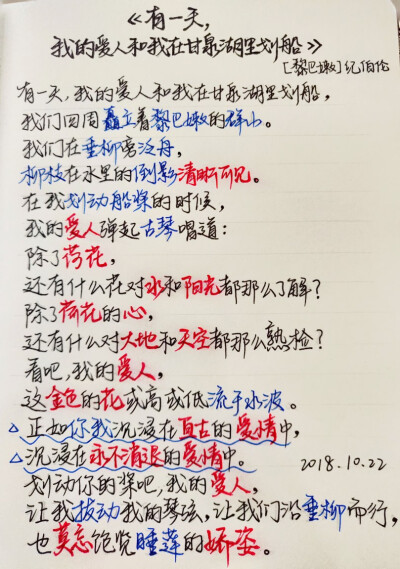 《有一天,
我的爱人和我在甘泉湖里划船》
[黎巴嫩]纪伯伦
有一天,我的爱人和我在甘泉湖里划船,
我们四周矗立着黎巴嫩的群山。
我们在垂柳旁泛舟,
柳枝在水里的倒影清晰可见。
在我划动船桨的时候,
我的爱人弹起古琴唱道:
除了荷花,
还有什么花对水和阳光都那么了解?
除了荷花的心,
还有什么对大地和天空都那么熟检?
看吧,我的爱人,
这金色的花或高或低流于水波。
△正如你我沉浸在亘古的爱情中,
△沉浸在永不消退的爱情中。
2018.10.22
划动你的桨吧,我的爱人,
让我拨动我的琴弦,让我们沿垂柳而行,
也莫忘饱览睡莲的娇姿。